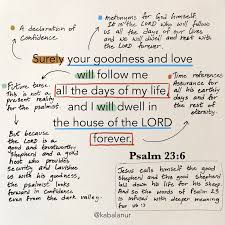 A declaration of
confidence.
Metonymy for God himself.
It is the LORD who will follow us
all the days of our lives
and we will dwell and rest with
the LORD forever.
Surely your goodness and love
will follow me
all the days of my life,
and I will dwell in
the house of the LORD
forever.
Future tense.
This is not a
present reality
for the psalmist.
But because
the LORD is a
good and trustworthy
shepherd and a good
host who provides
security and lavishes
us with his goodness,
the psalmist looks
forward in confidence
even from the dark valley.
Time references
Assurance for all his
earthly days
and for the
rest of
eternity.
Psalm 23:6
Jesus calls himself the good
shepherd and the good shepherd
laid down his life for his sheep.
And so the words of Psalm 23
is infused with deeper meaning
for us :)
@kabalanur